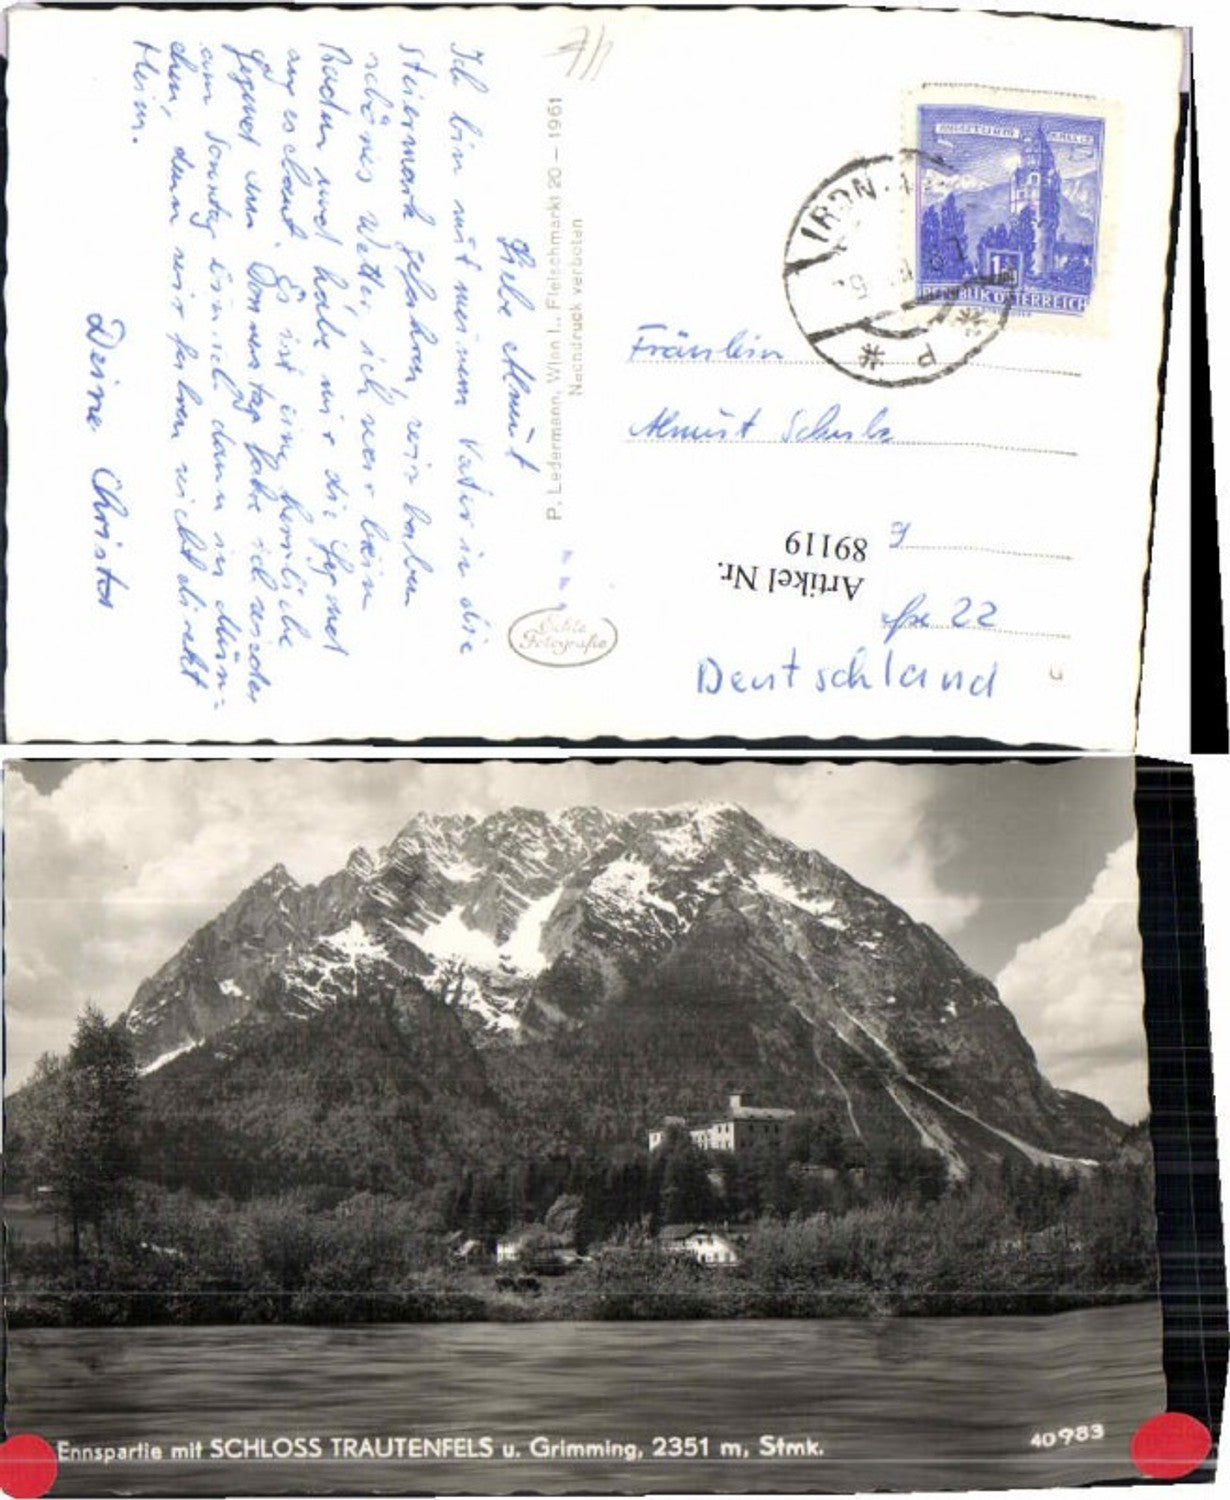 Liebe Almut
Ich bin mit meinem Vater in die
Steiermark gefahren, wir haben
schönes Wetter, ich war beim
Baden und habe mir die Gegend
angeschaut. Es ist eine herrliche
Gegend. Am Donnerstag fahre ich wieder
am Sonntag bin ich dann in Mün=
chen, denn wir fahren nicht direkt
Heim.
Deine Christa
P. Ledermann, Wien I., Fleischmarkt 20 – 1961
Nachdruck verboten
Echte
Fotografie
REPUBLIK ÖSTERREICH
Fräulein
Almut Schulz
9
22
Deutschland
Artikel Nr.
89119
Ennspartie mit SCHLOSS TRAUTENFELS u. Grimming, 2351 m, Stmk.
40983